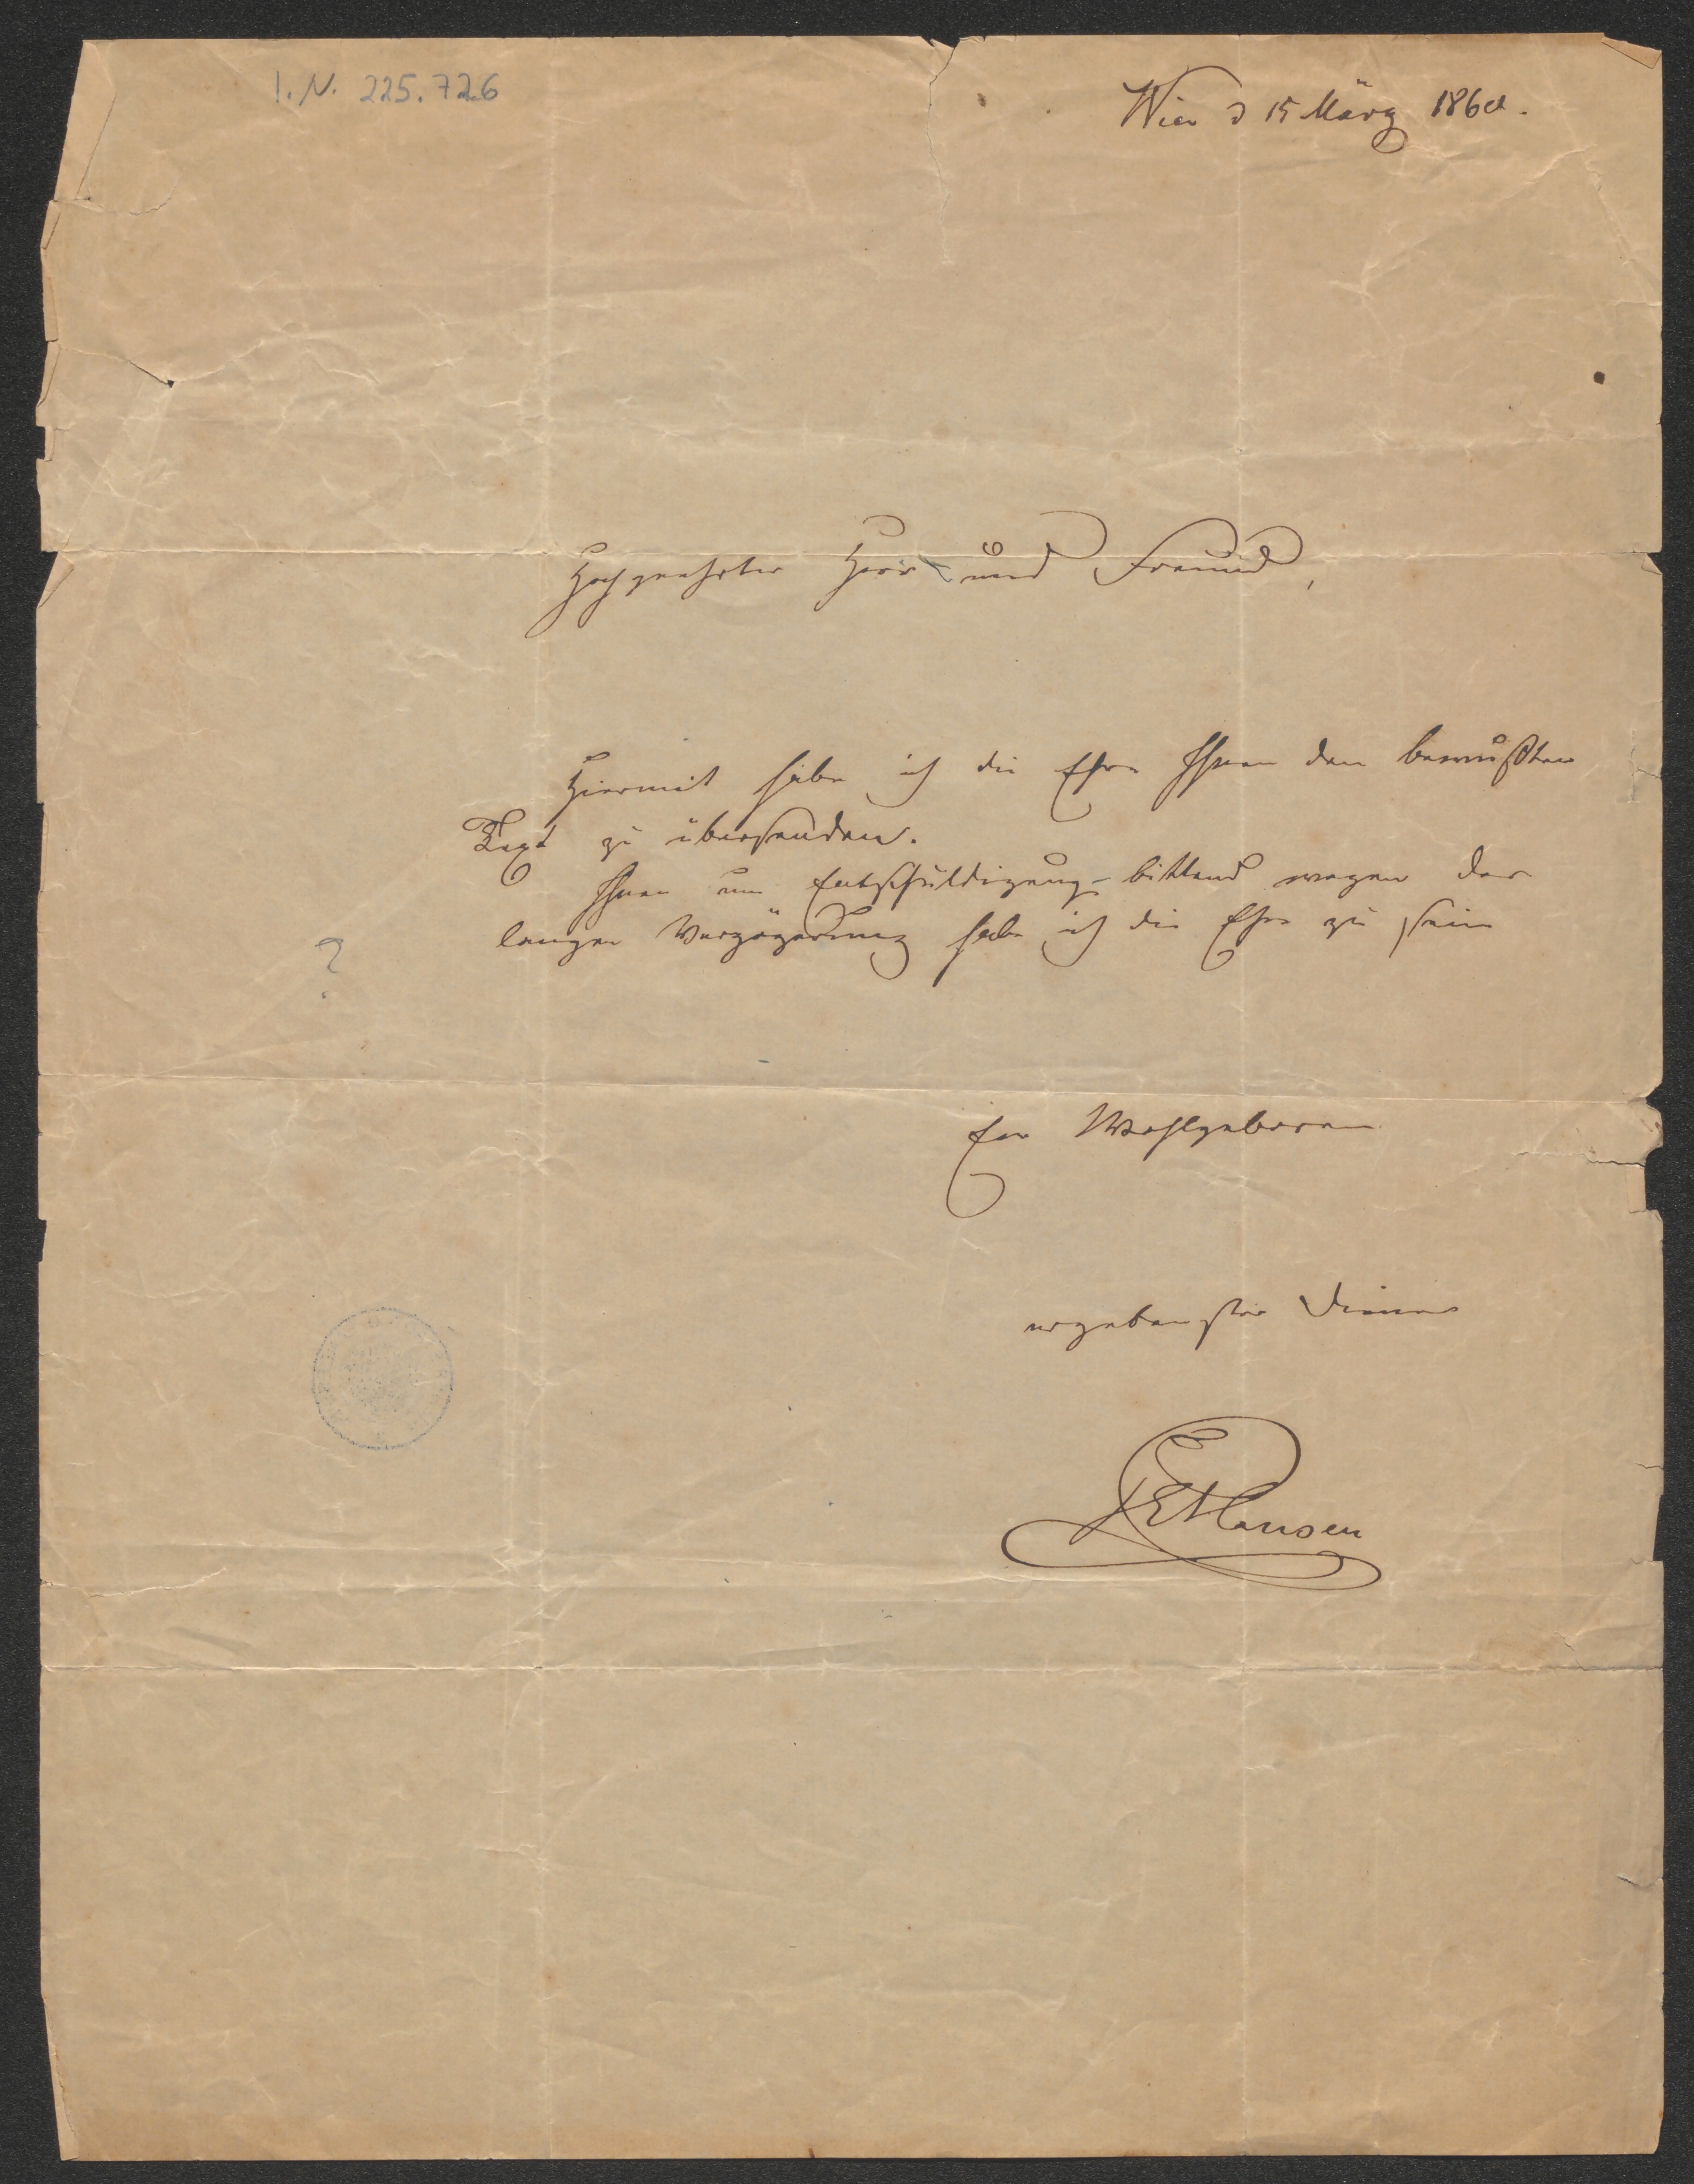 I.N. 225.726
Wien d 15 März 186
Hochgeehrter Herr und Freund,
Hiermit habe ich die Ehre Ihnen den bewußten
Text zu übersenden.
Ihnen um Entschuldigung bittend wegen der
langen Verzögerung habe ich die Ehre zu sein
?
Euer Wohlgeboren
ergebenster Diener
Hansen